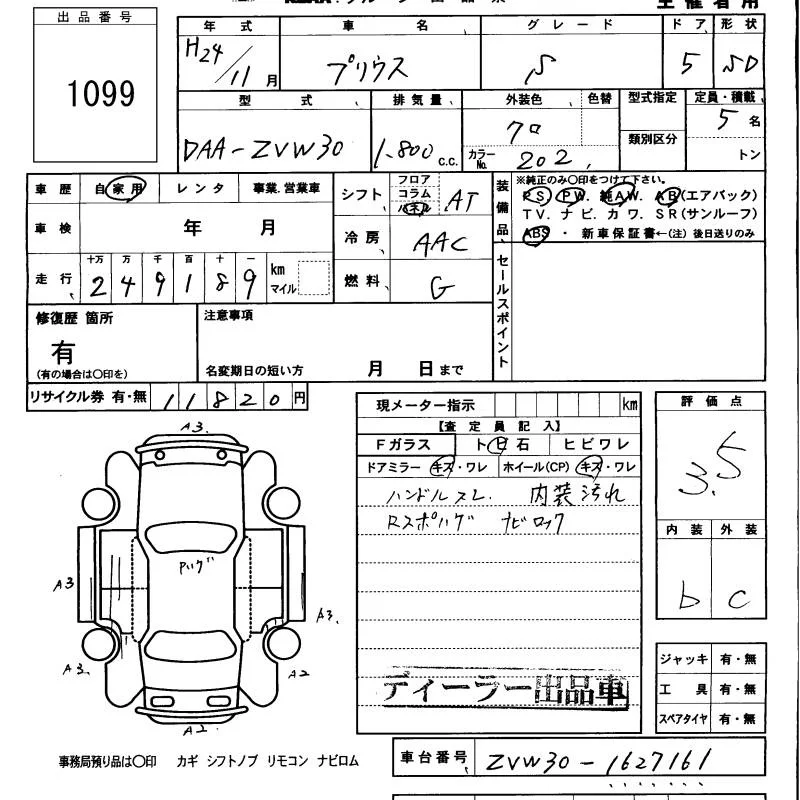 出品番号
1099
年式 車名 グレード ドア 形状
H24/11月 プリウス S 5 SD
型式 排気量 外装色 色替 型式指定 定員・積載
DAA-ZVW30 1.800 c.c. クロ カラーNo. 202 類別区分 5名
トン
車歴 自家用 レンタ 事業.営業車 シフト フロア コラム パネル AT
装備品 ※純正のみ○印をつけて下さい。
PS PW. 純AW. AB(エアバック)
TV. ナビ. カワ. SR(サンルーフ)
ABS ・ 新車保証書←(注) 後日送りのみ
車検 年 月 冷房 AAC
走行 十万 万 千 百 十 一 km マイル 燃料 G
2 4 9 1 8 9
セールスポイント
修復歴 箇所 注意事項
有
(有の場合は○印を) 名変期日の短い方 月 日まで
リサイクル券 有・無 11820円
現メーター指示 km
【査定員記入】
Fガラス トビ石 ヒビワレ
ドアミラー キズ・ワレ ホイール(CP) キズ・ワレ
ハンドルスレ. 内装汚れ
Rスポハゲ ナビロック
ディーラー出品車
評価点
3.5
内装 外装
b c
ジャッキ 有・無
工具 有・無
スペアタイヤ 有・無
A3.
Pハゲ
A3
A3.
A3.
A2
A2
事務局預り品は○印 カギ シフトノブ リモコン ナビロム
車台番号 ZVW30-1627161